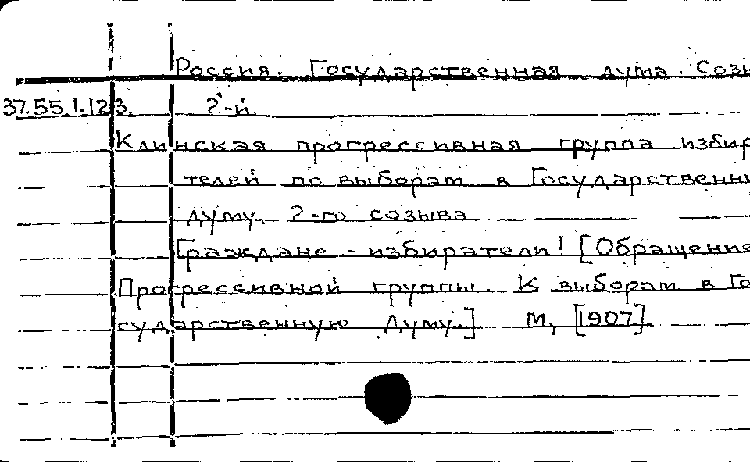 Россия. Государственная дума. Созы
37.55.1.123. 2-й.
Клинская прогрессивная группа избир
телей по выборам в Государственну
думу 2-го созыва
Граждане - избиратели! [Обращение
Прогрессивной группы. К выборам в Го
сударственную Думу.] М, [1907].